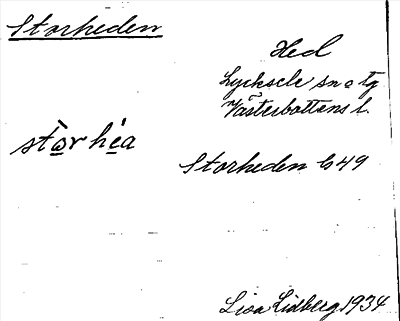 Storheden
Hed
Lycksele sn o tg
Västerbottens l.
stòr héa
Storheden b 49
Lisa Lidberg 1934